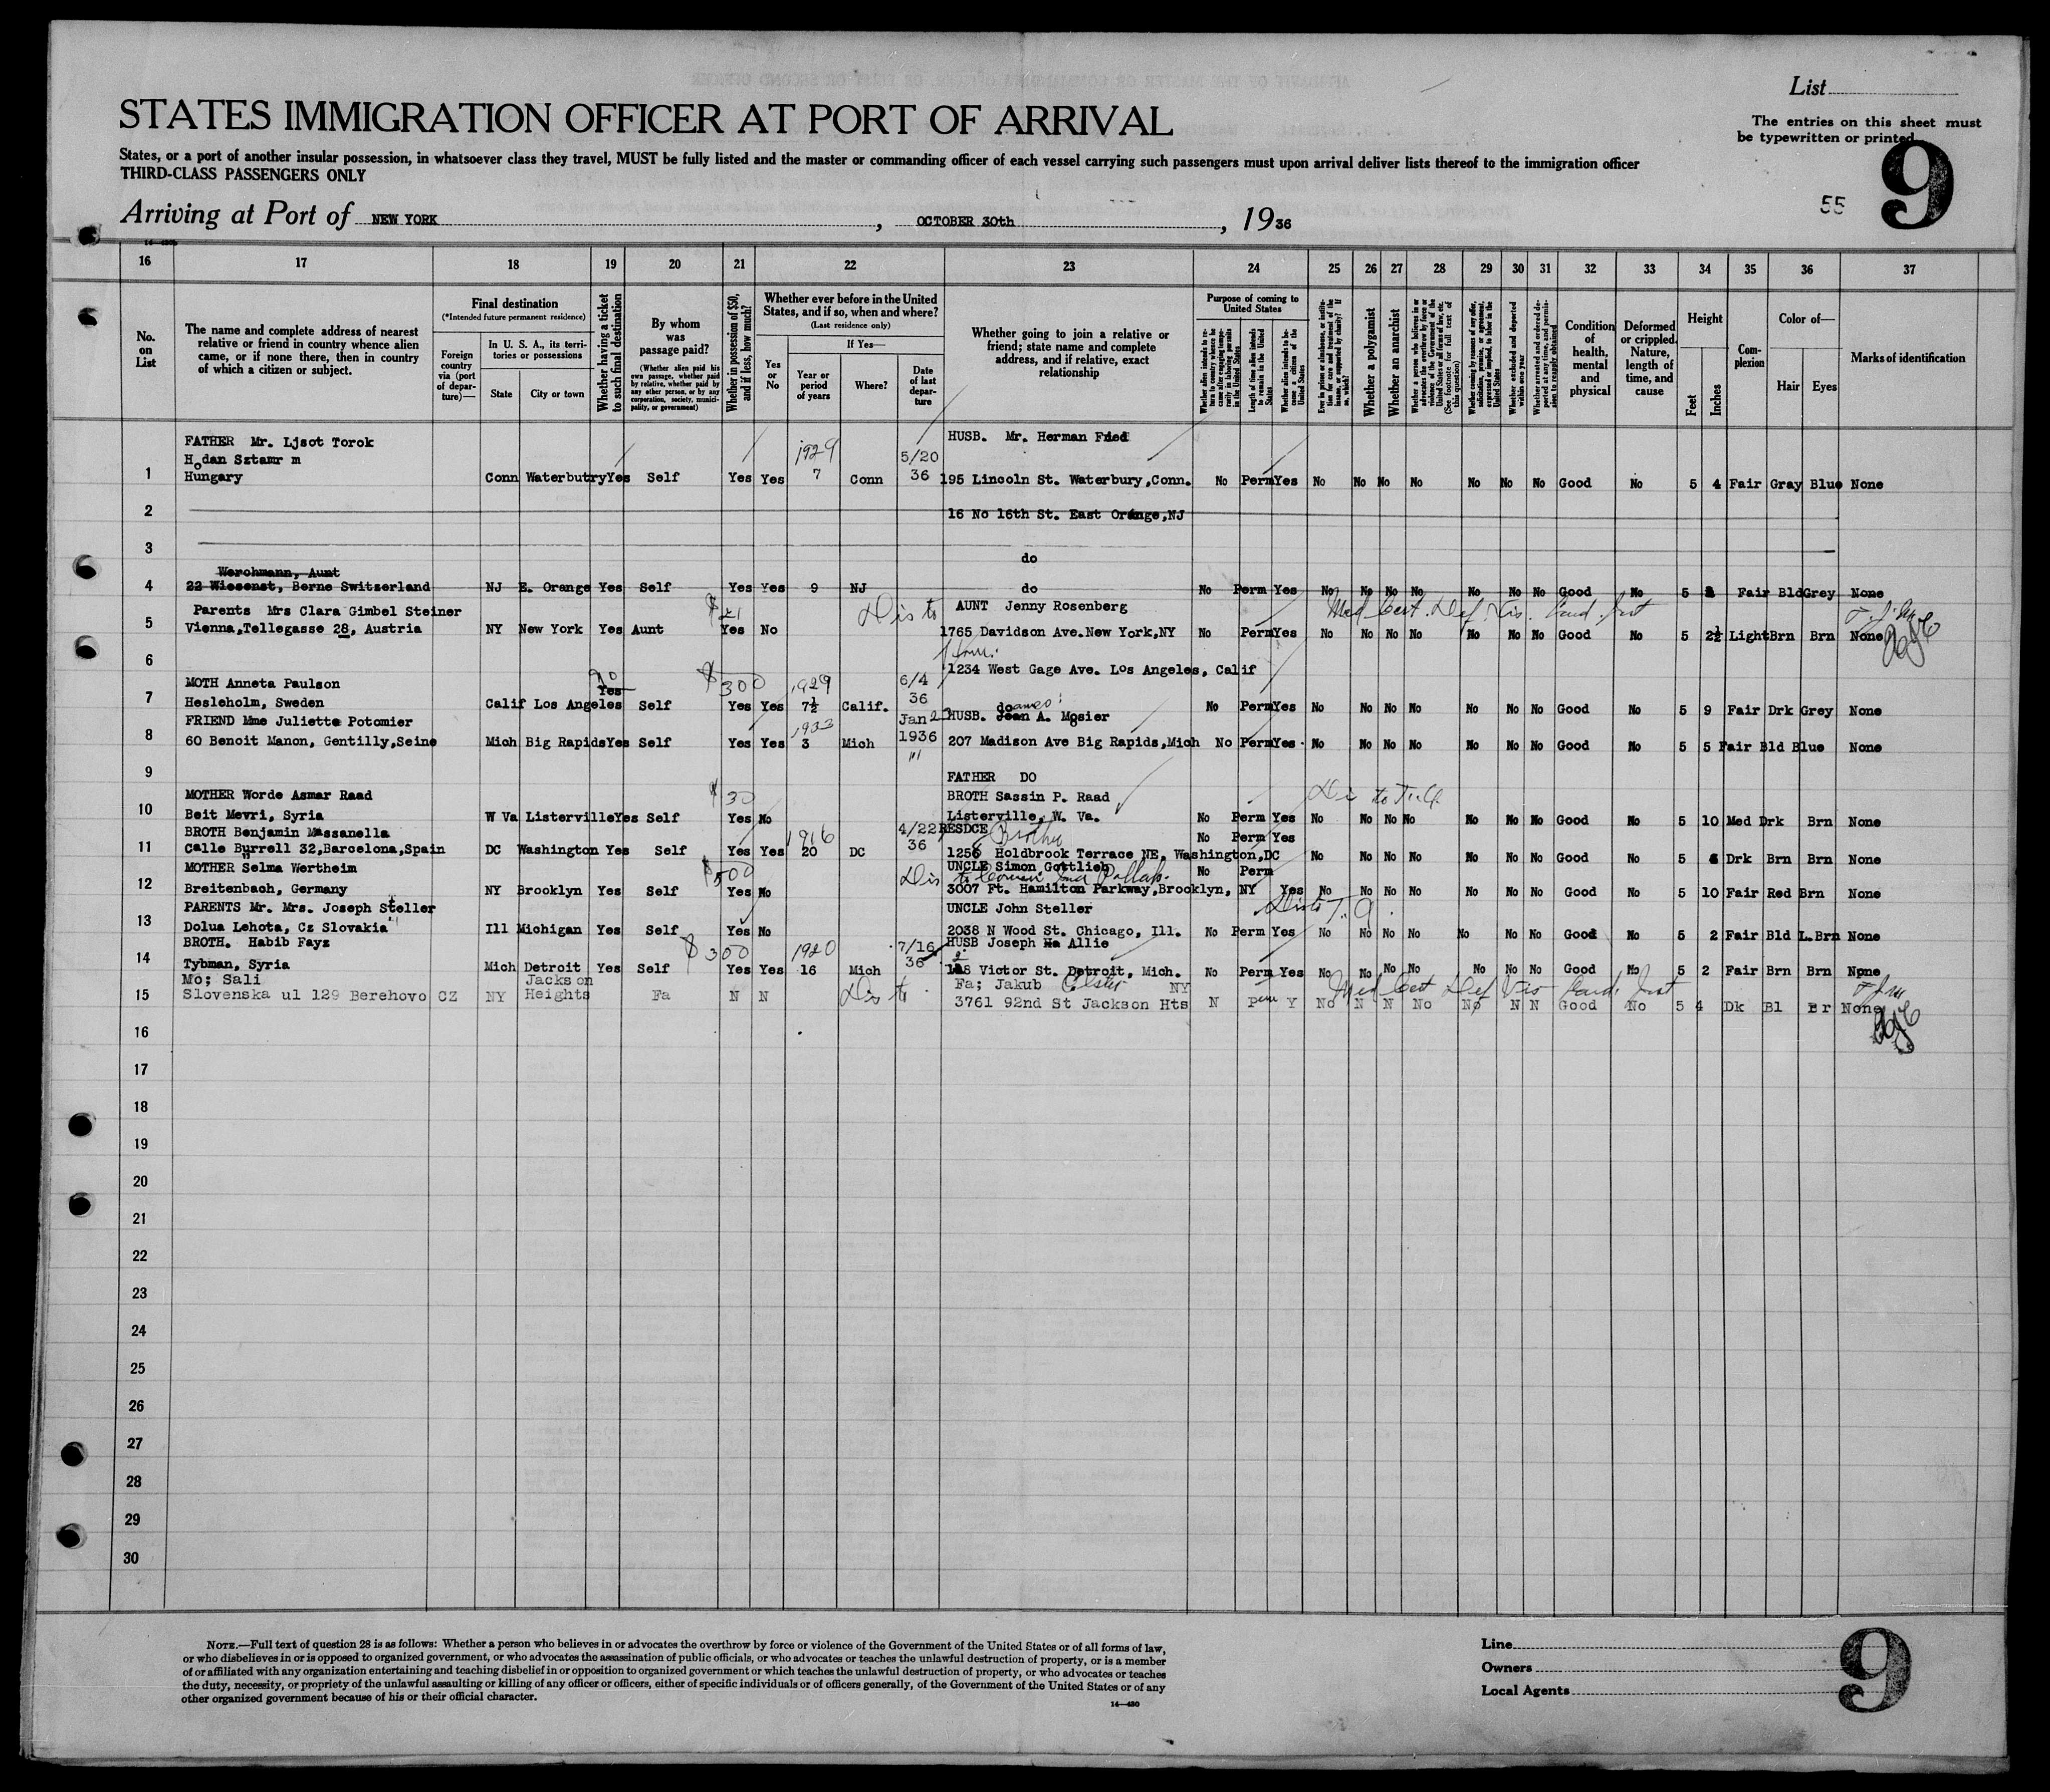 List
STATES IMMIGRATION OFFICER AT PORT OF ARRIVAL
The entries on this sheet must
be typewritten or printed
States, or a port of another insular possession, in whatsoever class they travel, MUST be fully listed and the master or commanding officer of each vessel carrying such passengers must upon arrival deliver lists thereof to the immigration officer
THIRD-CLASS PASSENGERS ONLY
55 9
Arriving at Port of NEW YORK, OCTOBER 30th, 1936
16 17 18 19 20 21 22 23 24 25 26 27 28 29 30 31 32 33 34 35 36 37
No. on List
The name and complete address of nearest relative or friend in country whence alien came, or if none there, then in country of which a citizen or subject.
Final destination
(*Intended future permanent residence)
Foreign country via (port of departure)—
In U. S. A., its territories or possessions
State City or town
Whether having a ticket to such final destination
By whom was passage paid?
(Whether alien paid his own passage, whether paid by relative, whether paid by any other person, or by any corporation, society, municipality, or government)
Whether in possession of $50, and if less, how much?
Whether ever before in the United States, and if so, when and where?
(Last residence only)
Yes or No
If Yes—
Year or period of years
Where?
Date of last departure
Whether going to join a relative or friend; state name and complete address, and if relative, exact relationship
Purpose of coming to United States
Length of time alien intends to remain in the United States
Whether alien intends to become a citizen of the United States
Whether a polygamist
Whether an anarchist
Condition of health, mental and physical
Deformed or crippled. Nature, length of time, and cause
Height
Feet Inches
Complexion
Color of—
Hair Eyes
Marks of identification
FATHER Mr. Ljsot Torok HUSB. Mr. Herman Fried
Hodan Sztamr m 1929 5/20
1 Hungary Conn Waterbutry Yes Self Yes Yes 7 Conn 36 195 Lincoln St. Waterbury,Conn. No Perm Yes No No No No No No No Good No 5 4 Fair Gray Blue None
2 16 No 16th St. East Orange,NJ
3 do
Werchmann, Aunt
4 22 Wiesenst, Berne Switzerland NJ E. Orange Yes Self Yes Yes 9 NJ do No Perm Yes No No No No No No No Good No 5 Fair Bld Grey None
Parents Mrs Clara Gimbel Steiner $21 Dis to AUNT Jenny Rosenberg Med Cert. Def Vis.
5 Vienna,Tellegasse 28, Austria NY New York Yes Aunt Yes No 1765 Davidson Ave.New York,NY No Perm Yes No No No No No No No Good No 5 2½ Light Brn Brn None
6 1234 West Gage Ave. Los Angeles, Calif
MOTH Anneta Paulson No Yes $300 1929 6/4
7 Hesleholm, Sweden Calif Los Angeles Self Yes Yes 7½ Calif. 36 do No Perm Yes No No No No No No No Good No 5 9 Fair Drk Grey None
FRIEND Mme Juliette Potomier 1933 Jan 2 HUSB. Jean A. Mosier
8 60 Benoit Manon, Gentilly,Seine Mich Big Rapids Yes Self Yes Yes 3 Mich 1936 207 Madison Ave Big Rapids,Mich No Perm Yes No No No No No No No Good No 5 5 Fair Bld Blue None
9 FATHER DO
MOTHER Worde Asmar Raad $30 BROTH Sassin P. Raad
10 Beit Mevri, Syria W Va Listerville Yes Self Yes No Listerville, W. Va. No Perm Yes No No No No No No No Good No 5 10 Med Drk Brn None
BROTH Benjamin Massanella 1916 4/22 RESDCE Brother No Perm Yes
11 Calle Burrell 32,Barcelona,Spain DC Washington Yes Self Yes Yes 20 DC 36 1256 Holdbrook Terrace NE. Washington,DC No No No No No No No Good No 5 Drk Brn Brn None
MOTHER Selma Wertheim $500 Dis to UNCLE Simon Gottlieb No Perm
12 Breitenbach, Germany NY Brooklyn Yes Self Yes No 3007 Ft. Hamilton Parkway,Brooklyn, NY Yes No No No No No No No Good No 5 10 Fair Red Brn None
PARENTS Mr. Mrs. Joseph Steller UNCLE John Steller
13 Dolua Lehota, Cz Slovakia Ill Michigan Yes Self Yes No 2038 N Wood St. Chicago, Ill. No Perm Yes No No No No No No No Good No 5 2 Fair Bld L.Brn None
BROTH. Habib Fayz $300 1920 7/16 HUSB Joseph Allie
14 Tybman, Syria Mich Detroit Yes Self Yes Yes 16 Mich 36 Victor St. Detroit, Mich. No Perm Yes No No No No No No No Good No 5 2 Fair Brn Brn None
Mo; Sali Jackson Dis to Fa; Jakub NY Med Cert Def Vis
15 Slovenska ul 129 Berehovo CZ NY Heights Fa N N 3761 92nd St Jackson Hts N Perm Y No N N No No N N Good No 5 4 Dk Bl Br None
16
17
18
19
20
21
22
23
24
25
26
27
28
29
30
NOTE.—Full text of question 28 is as follows: Whether a person who believes in or advocates the overthrow by force or violence of the Government of the United States or of all forms of law,
or who disbelieves in or is opposed to organized government, or who advocates the assassination of public officials, or who advocates or teaches the unlawful destruction of property, or is a member
of or affiliated with any organization entertaining and teaching disbelief in or opposition to organized government or which teaches the unlawful destruction of property, or who advocates or teaches
the duty, necessity, or propriety of the unlawful assaulting or killing of any officer or officers, either of specific individuals or of officers generally, of the Government of the United States or of any
other organized government because of his or their official character.
14—430
Line
Owners
Local Agents
9